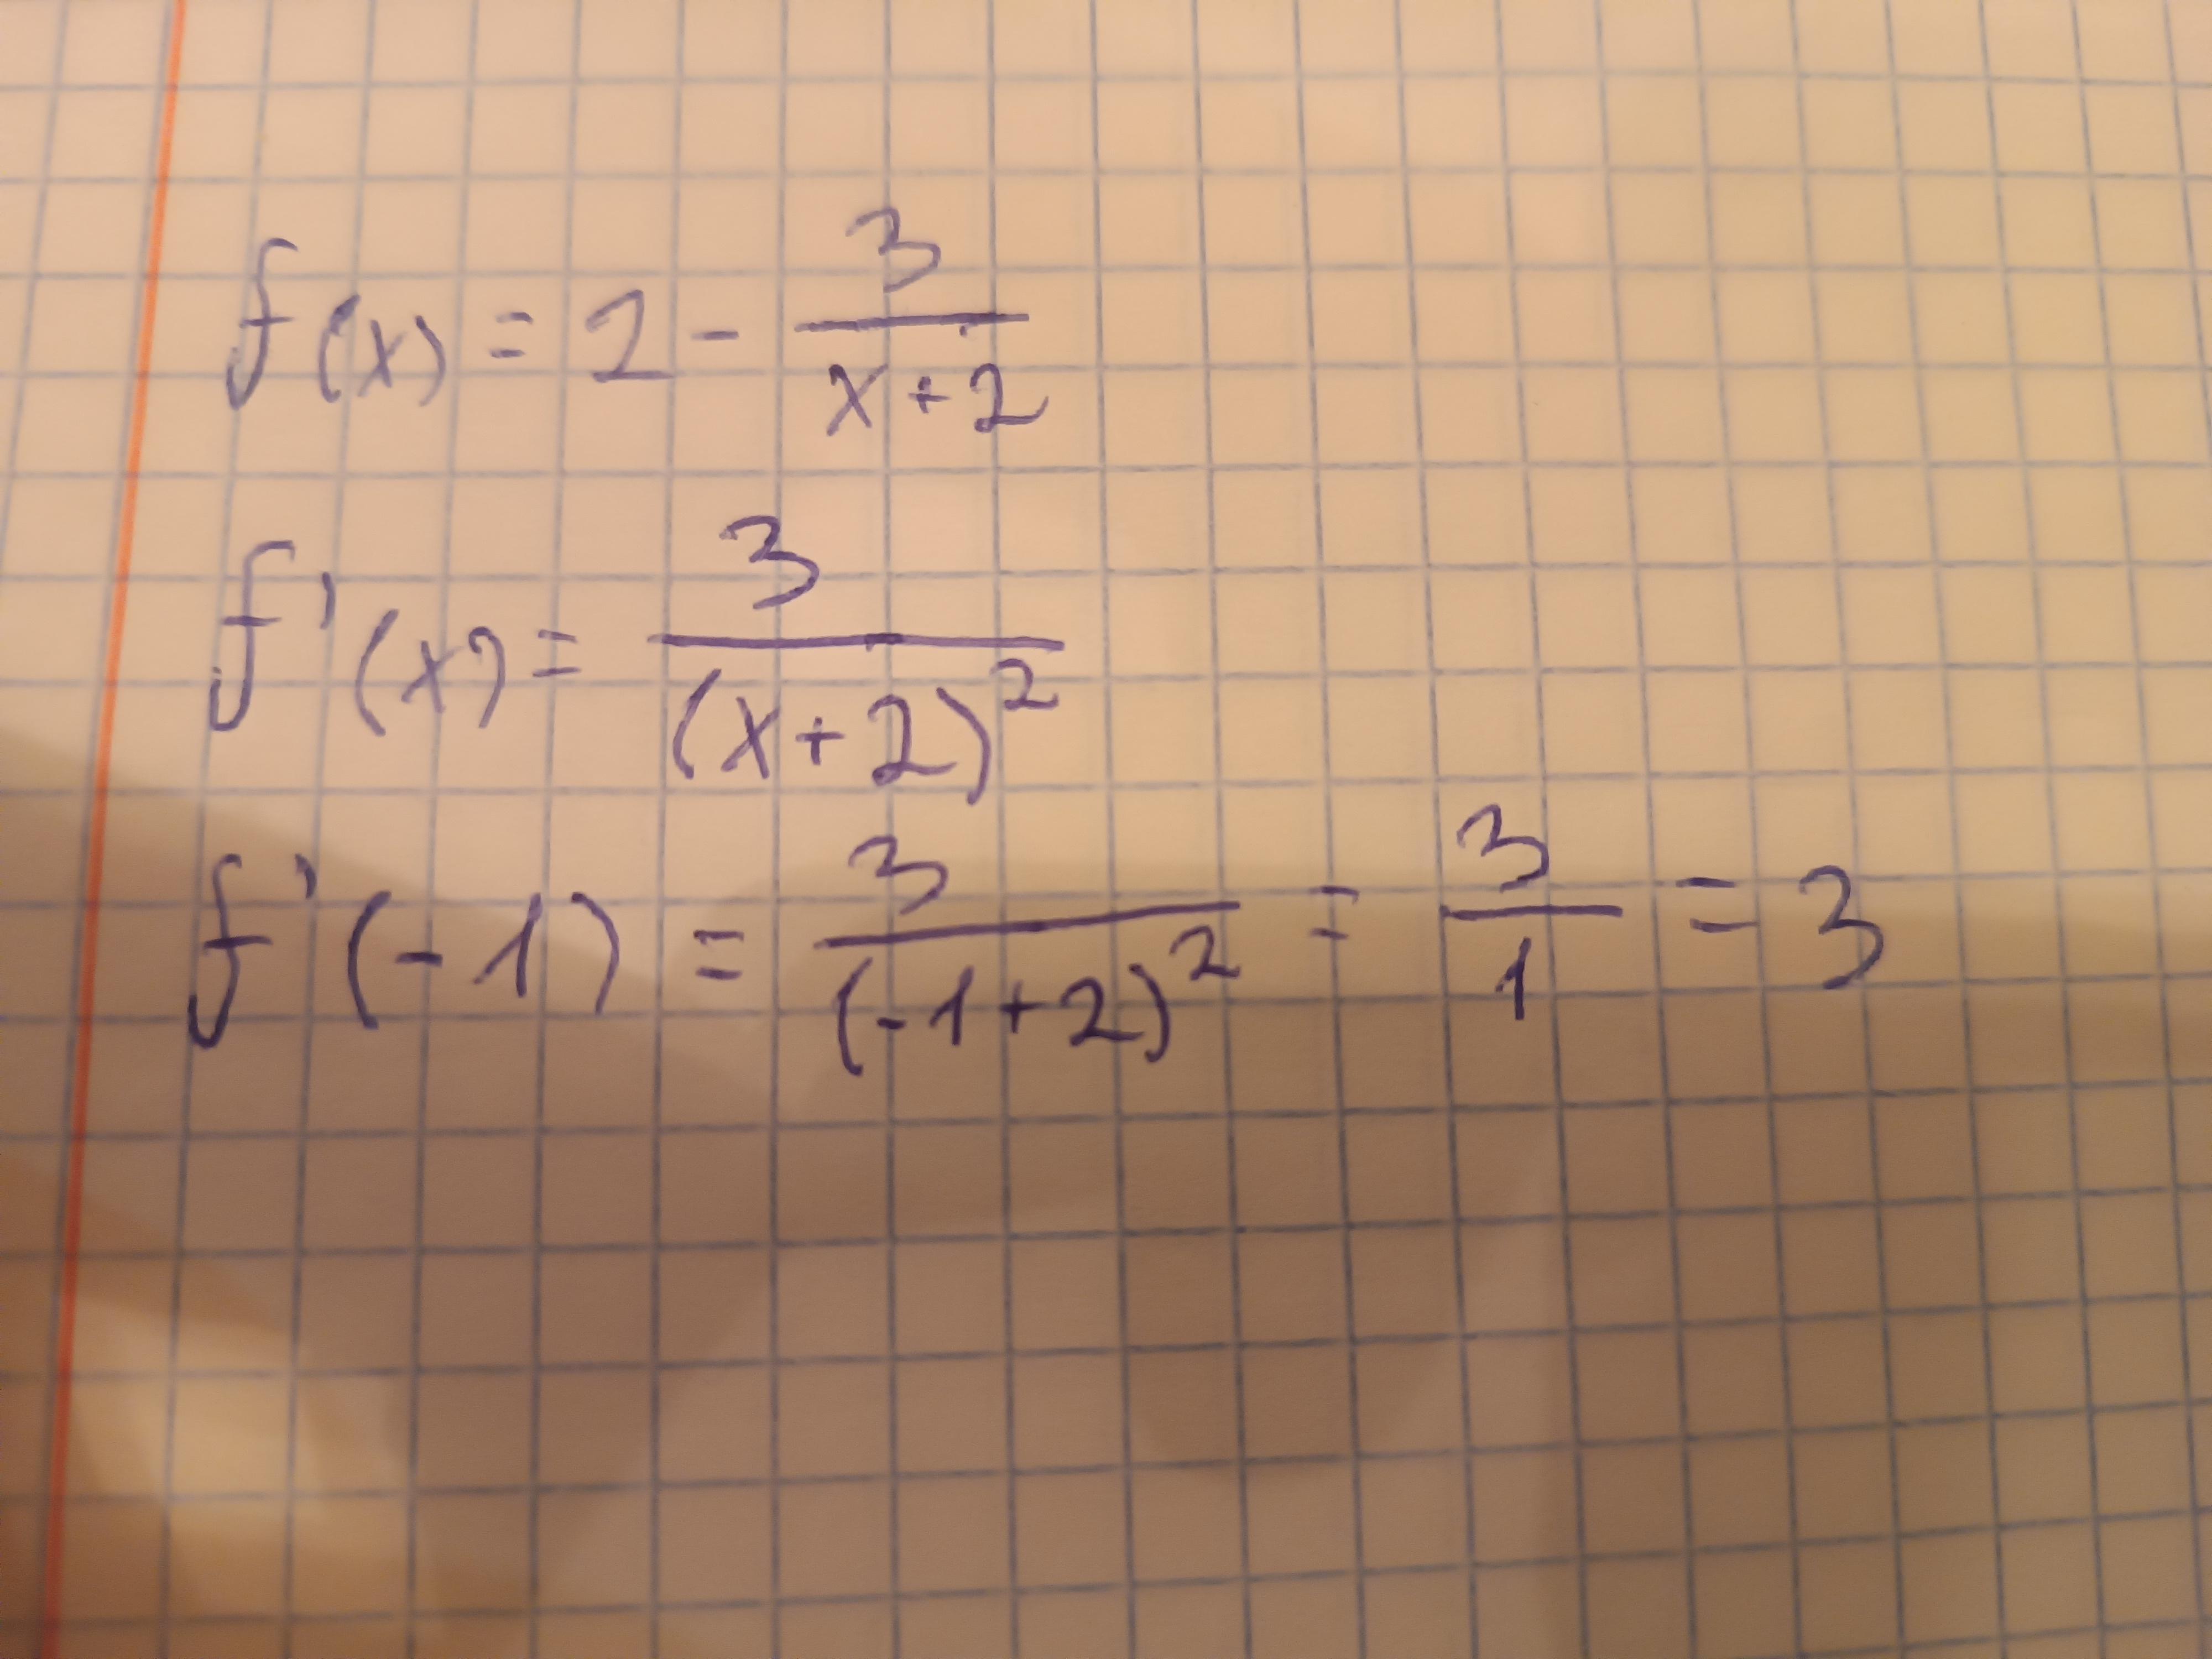 f(x) = 2 - 3/(x+2)
f'(x) = 3/(x+2)²
f'(-1) = 3/(-1+2)² = 3/1 = 3